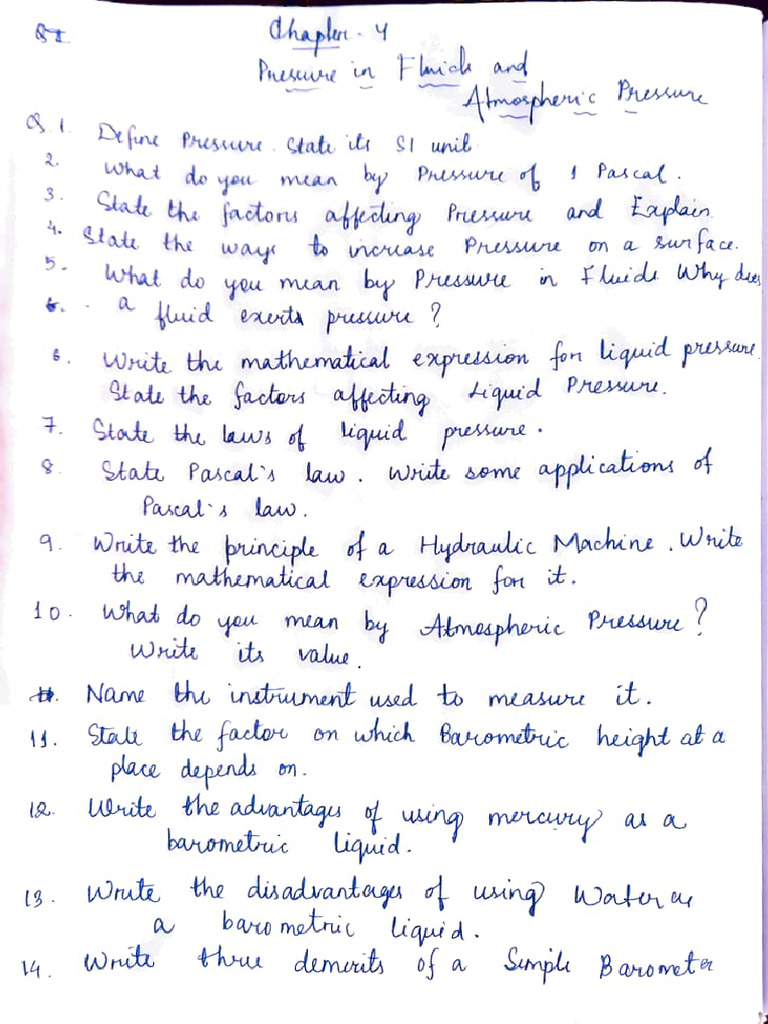 Chapter - 4
Pressure in Fluids and
Atmospheric Pressure
Q.1. Define Pressure. State its SI unit
2. What do you mean by Pressure of 1 Pascal.
3. State the factors affecting Pressure and Explain.
4. State the ways to increase Pressure on a surface.
5. What do you mean by Pressure in Fluids Why does
a fluid exerts pressure?
6. Write the mathematical expression for liquid pressure.
State the factors affecting Liquid Pressure.
7. State the laws of liquid pressure.
8. State Pascal's law. Write some applications of
Pascal's law.
9. Write the principle of a Hydraulic Machine. Write
the mathematical expression for it.
10. What do you mean by Atmospheric Pressure?
Write its value.
Name the instrument used to measure it.
11. State the factor on which Barometric height at a
place depends on.
12. Write the advantages of using mercury as a
barometric liquid.
13. Write the disadvantages of using Water as
a barometric liquid.
14. Write three demerits of a Simple Barometer